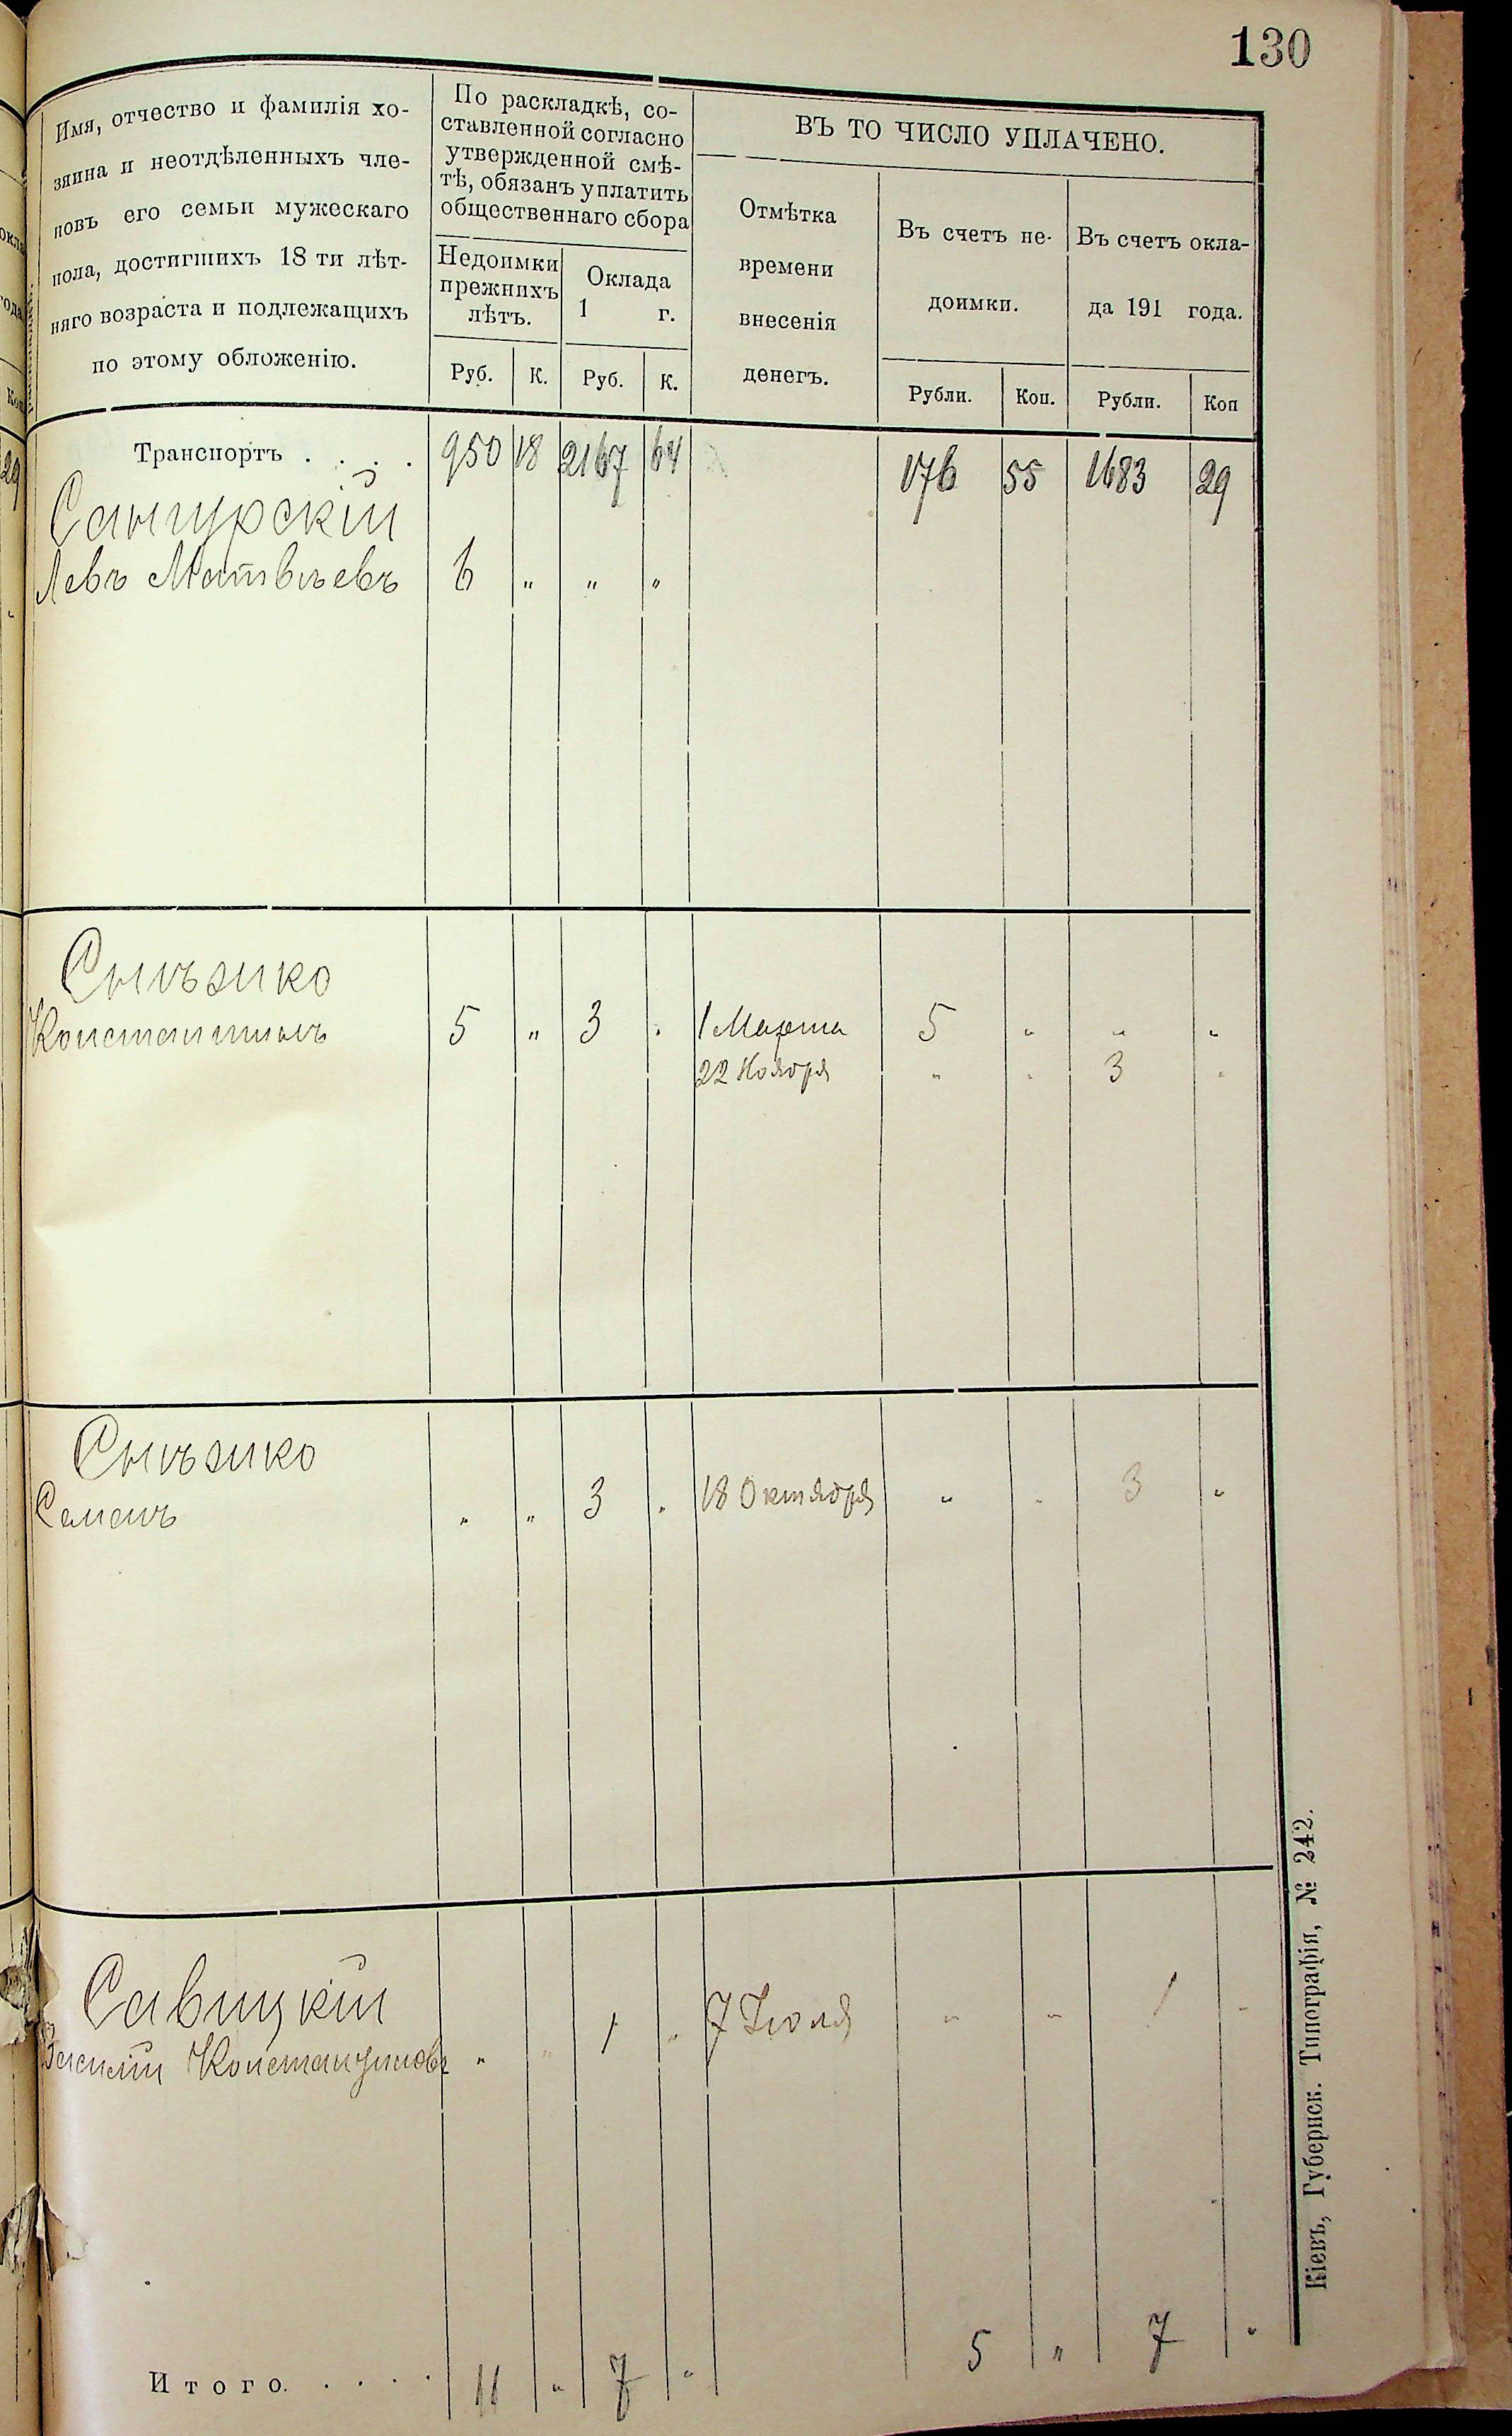 130
Имя, отчество и фамилія хо-
зяина и неотдѣленныхъ чле-
новъ его семьи мужескаго
пола, достигшихъ 18 ти лѣт-
няго возраста и подлежащихъ
по этому обложенію.
По раскладкѣ, со-
ставленной согласно
утвержденной смѣ-
тѣ, обязанъ уплатить
общественнаго сбора
Недоимки
прежнихъ
лѣтъ.
Оклада
1 г.
Руб. К. Руб. К.
ВЪ ТО ЧИСЛО УПЛАЧЕНО.
Отмѣтка
времени
внесенія
денегъ.
Въ счетъ не-
доимки.
Въ счетъ окла-
да 191 года.
Рубли. Коп. Рубли. Коп
Транспортъ . . . . 950 18 2167 64 176 55 1683 29
Сангурскій
Левъ Матвѣевъ 6 " " "
Снѣзико
Константинъ 5 " 3 " 1 Марта 5 " " "
22 Ноября " " 3 "
Снѣзико
Семенъ " " 3 " 18 Октября " " 3 "
Савицкій
Василій Константиновъ " " 1 " 7 Іюля " " 1 "
Итого. . . . . 11 " 7 " 5 " 7 "
Кіевъ, Губернск. Типографія, № 242.